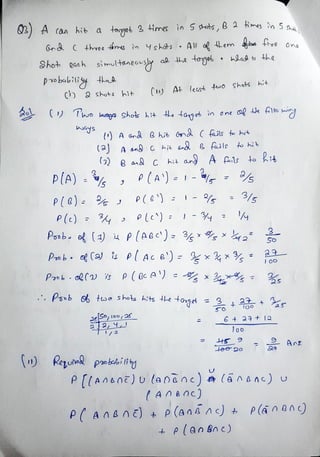 Q3) A can hit a target 3 times in 5 shots, B 2 times in 5 shots
and C three times in 4 shots. All of them fire one
shot each simultaneously at the target. What is the
probability that
(i) 2 shots hit (ii) At least two shots hit
Sol) (i) Two shots hit the target in one of the following
ways
(1) A and B hit and C fails to hit
(2) A and C hit and B fails to hit
(3) B and C hit and A fails to hit
P(A) = 3/5 , P(A') = 1 - 3/5 = 2/5
P(B) = 2/5 , P(B') = 1 - 2/5 = 3/5
P(C) = 3/4 , P(C') = 1 - 3/4 = 1/4
Prob. of (1) is P(ABC') = 3/5 × 2/5 × 1/4 = 3/50
Prob. of (2) is P(ACB') = 3/5 × 3/4 × 3/5 = 27/100
Prob. of (3) is P(BCA') = 2/5 × 3/4 × 2/5 = 3/25
∴ Prob of two shots hits the target = 3/50 + 27/100 + 3/25
25|50,100,25
2|2,4,1
1,2
= 6+27+12/100
= 45/100 9/20 = 9/20 Ans
(ii) Required probability
P[(A∩B∩C̄) ∪ (A∩B̄∩C) ∪ (Ā∩B∩C) ∪
(A∩B∩C)
P(A∩B∩C̄) + P(A∩B̄∩C) + P(Ā∩B∩C)
+ P(A∩B∩C)